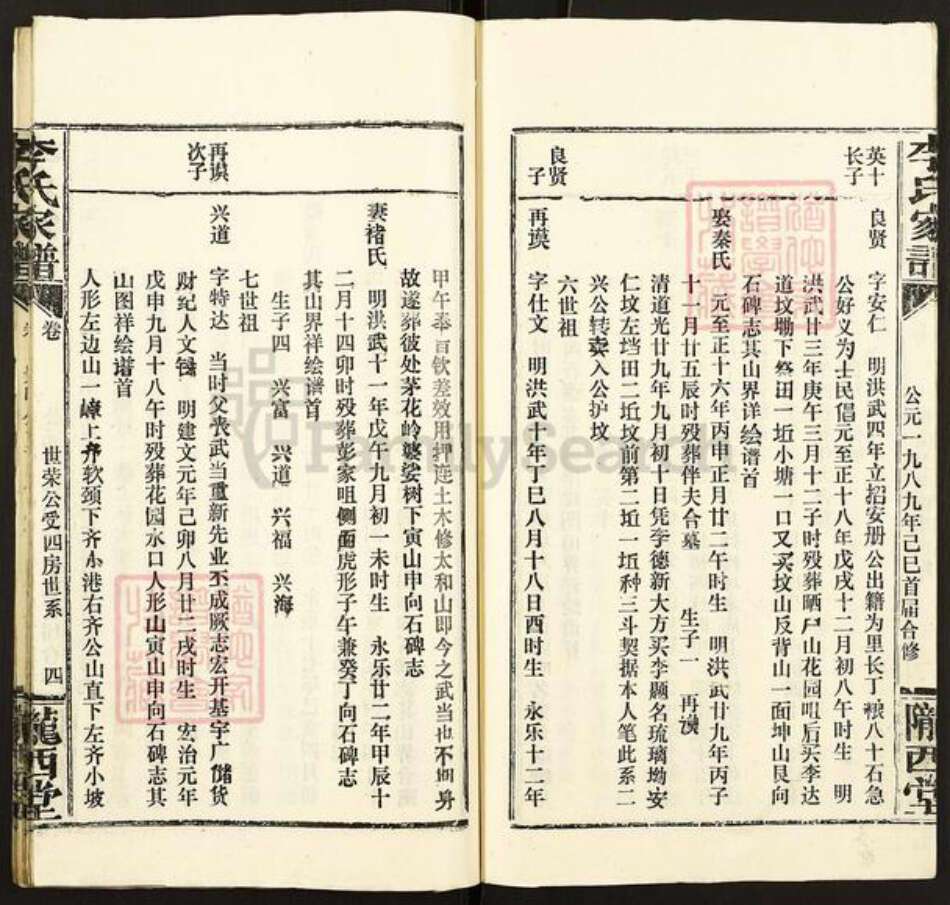 李氏家谱
公元一九八九年己巳首届合修
陇西堂
英十
长子
良贤 字安仁 明洪武四年立招安册公出籍为里长丁粮八十石急
公好义为士民倡元至正十八年戊戌十二月初八午时生 明
洪武廿三年庚午三月十二子时殁葬晒尸山花园咀后买李达
道坟塝下祭田一坵小塘一口又买坟山反背山一面坤山艮向
石碑志其山界详绘谱首
娶秦氏 元至正十六年丙申正月廿二午时生 明洪武廿九年丙子
十一月廿五辰时殁葬伴夫合墓 生子一 再谟
清道光廿九年九月初十日凭李德新大方买李显名琉璃坳安
仁坟左垱田二坵坟前第二坵一坵种三斗契据本人笔此系二
兴公转卖入公护坟
六世祖
良贤
子
再谟 字仕文 明洪武十年丁巳八月十八日酉时生 永乐十二年
甲午奉 钦差效用押运土木修太和山即今之武当也不
故遂葬彼处茅花岭婆娑树下寅山申向石碑志
妻褚氏 明洪武十一年戊午九月初一未时生 永乐廿二年甲辰十
二月十四卯时殁葬彭家咀侧面虎形子午兼癸丁向石碑志
其山界祥绘谱首
生子四 兴富 兴道 兴福 兴海
七世祖
再谟
次子
兴道 字特达 当时父丧武当重新先业丕成厥志宏开基宇广储货
财纪人文 明建文元年己卯八月廿二戌时生 宏治元年
戊申九月十八午时殁葬花园水口人形山寅山申向石碑志其
山图祥绘谱首
人形左边山一嶂上齐软颈下齐小港右齐公山直下左齐小坡
李氏家谱
卷
世荣公受四房世系
四
陇西堂
FamilySearch